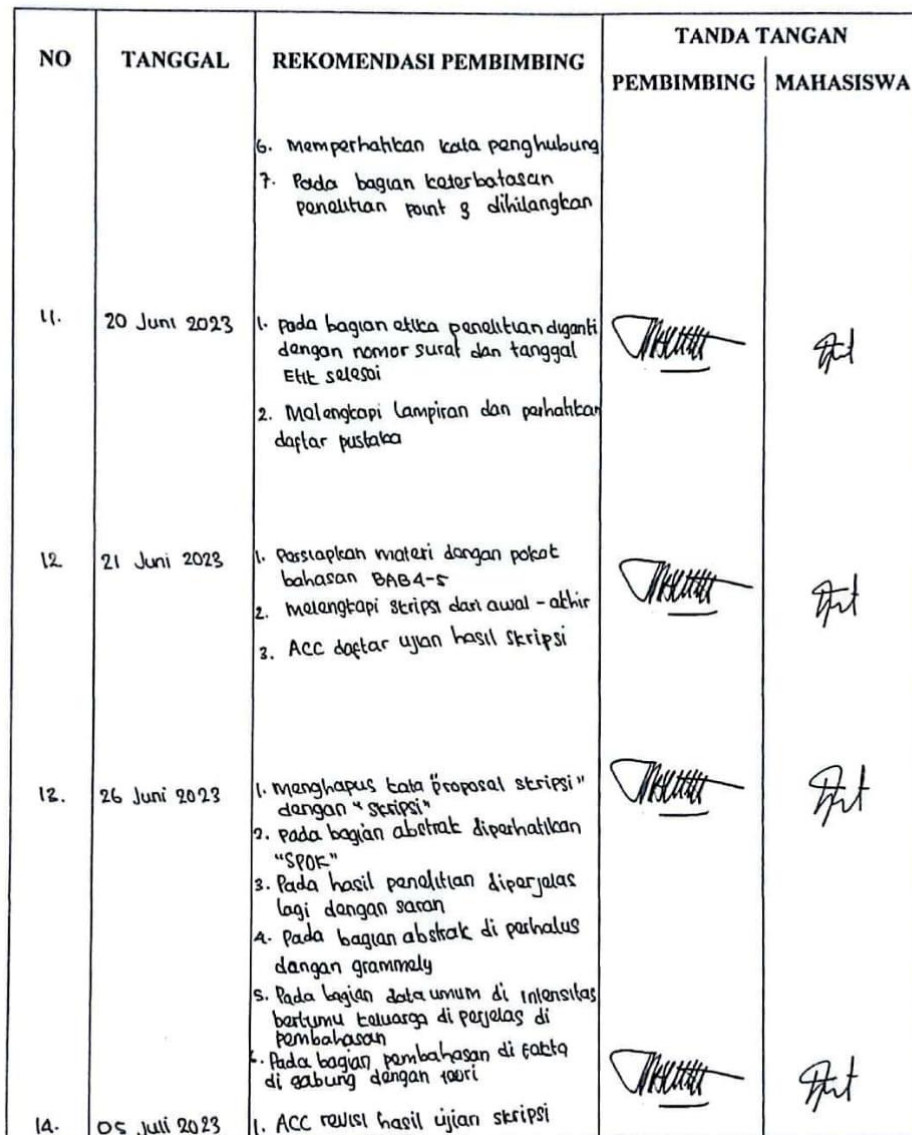 NO TANGGAL REKOMENDASI PEMBIMBING TANDA TANGAN
PEMBIMBING MAHASISWA
6. Memperhatikan kata penghubung
7. Pada bagian keterbatasan
penelitian point 3 dihilangkan
11. 20 Juni 2023 1. Pada bagian etika penelitian diganti
dengan nomor surat dan tanggal
Etik selesai
2. Melengkapi Lampiran dan perhatikan
daftar pustaka
12. 21 Juni 2023 1. Persiapkan materi dengan pokok
bahasan BAB 4-5
2. Melengkapi skripsi dari awal - akhir
3. ACC daftar ujian hasil skripsi
13. 26 Juni 2023 1. Menghapus kata "proposal skripsi"
dengan "skripsi"
2. Pada bagian abstrak diperhatikan
"SPOK"
3. Pada hasil penelitian diperjelas
lagi dengan saran
4. Pada bagian abstrak di perhalus
dengan grammely
5. Pada bagian data umum di intensitas
bertumu keluarga di perjelas di
pembahasan
6. Pada bagian pembahasan di fakta
di gabung dengan teori
14. 05 Juli 2023 1. ACC revisi hasil ujian skripsi